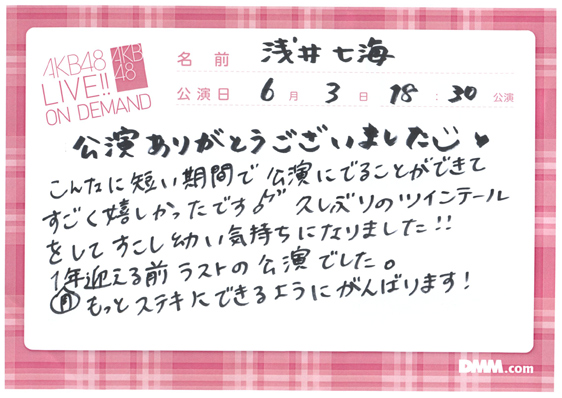 AKB48
LIVE!!
ON DEMAND
AKB
48
名前 浅井七海
公演日 6月3日 18:30公演
公演ありがとうございました♥
こんなに短い期間で公演にでることができて
すごく嬉しかったです 久しぶりのツインテール
をしてすこし幼い気持ちになりました!!
1年迎える前ラストの公演でした。
もっとステキにできるようにがんばります!
DMM.com